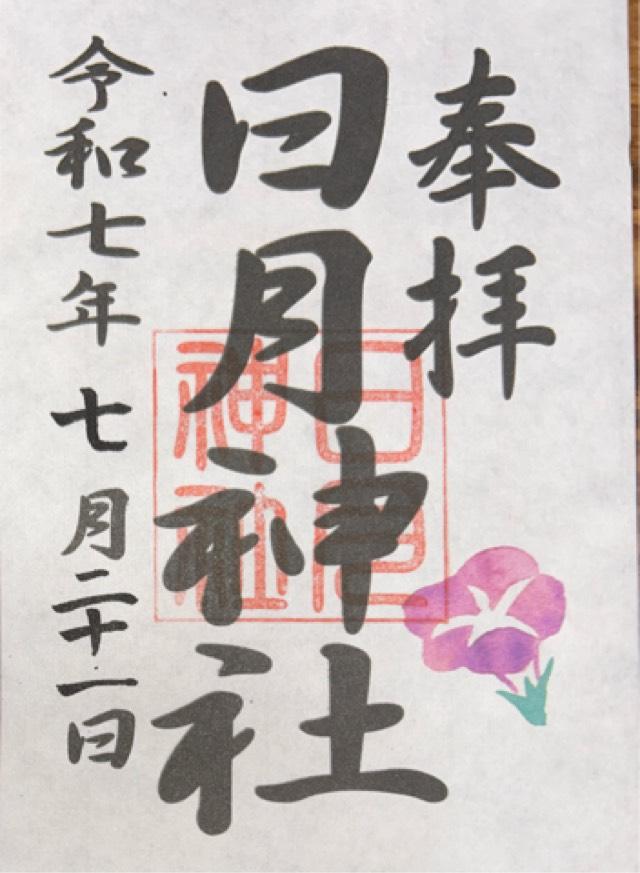 奉拝
日月神社
日月神社
令和七年七月二十一日